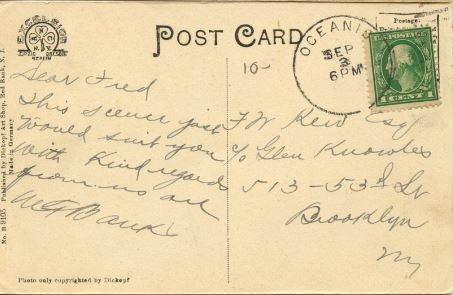 POST CARD
EXCELSIOR
N.Y.
LEIPZIG DRESDEN
BERLIN
No. B 9105 Published by Dickopf Art Shop, Red Bank, N. J.
Made in Germany
10-
OCEANIC
SEP
3
6 PM
Postage:
U.S. POSTAGE
1 CENT 1
Dear Fred
This scene just
would suit you
with kind regards
from us all
F W Kew Esq
c/o Glen Knowles
513-53d St
Brooklyn
NY
Photo only copyrighted by Dickopf